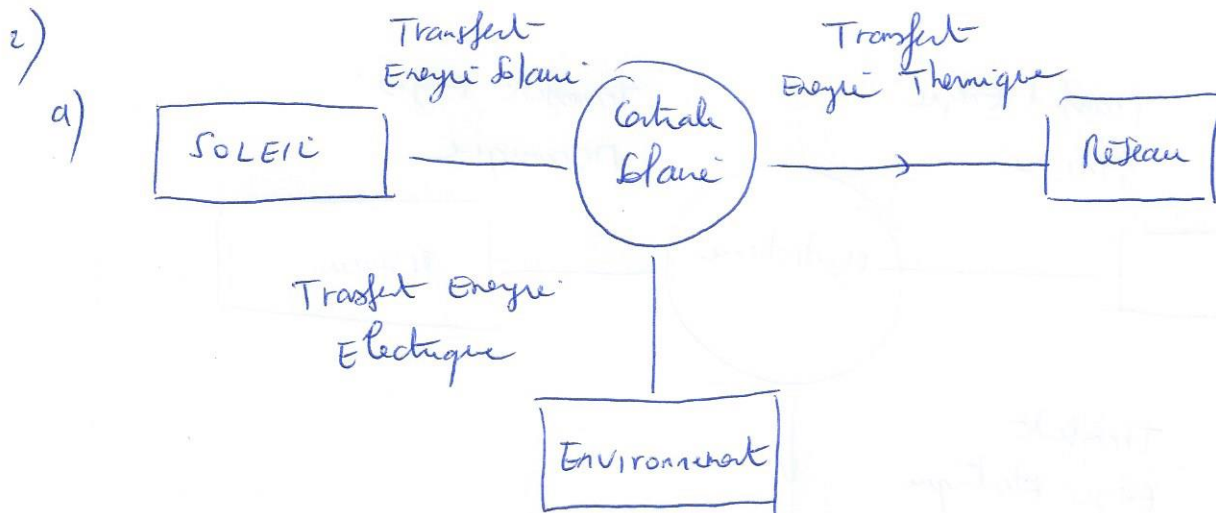 2)
a)
Transfert
Energie Solaire
Transfert
Energie Thermique
SOLEIL
Centrale
Solaire
Réseau
Trasfert Energie
Electrique
Environnement